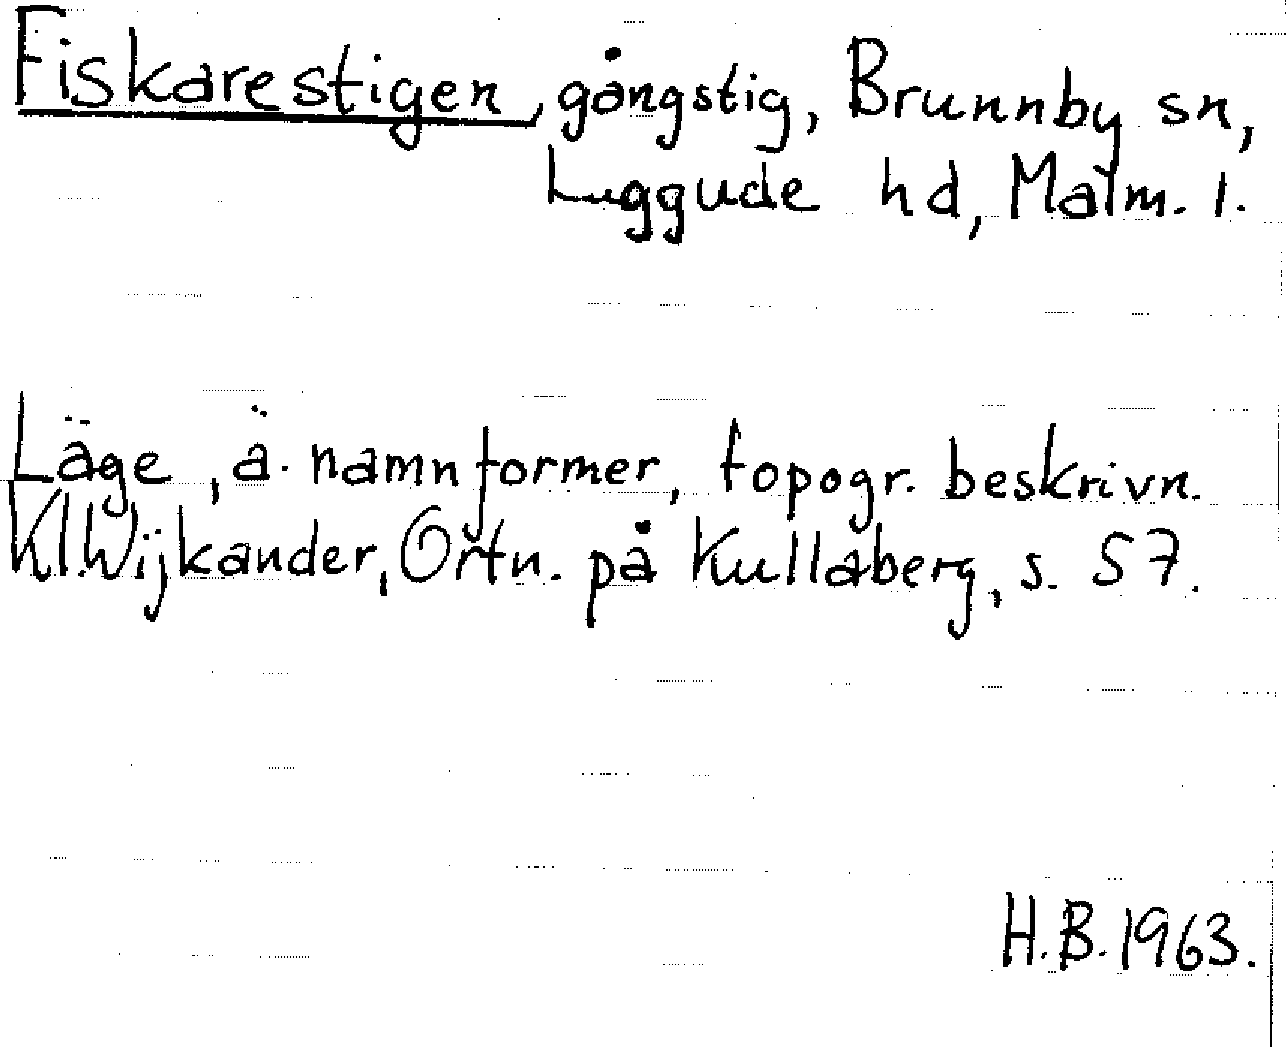 Fiskarestigen, gångstig, Brunnby sn,
Luggude hd, Malm. l.
Läge, ä. namnformer, topogr. beskrivn.
Kl. Wijkander, Ortn. på Kullaberg, s. 57.
H.B. 1963.